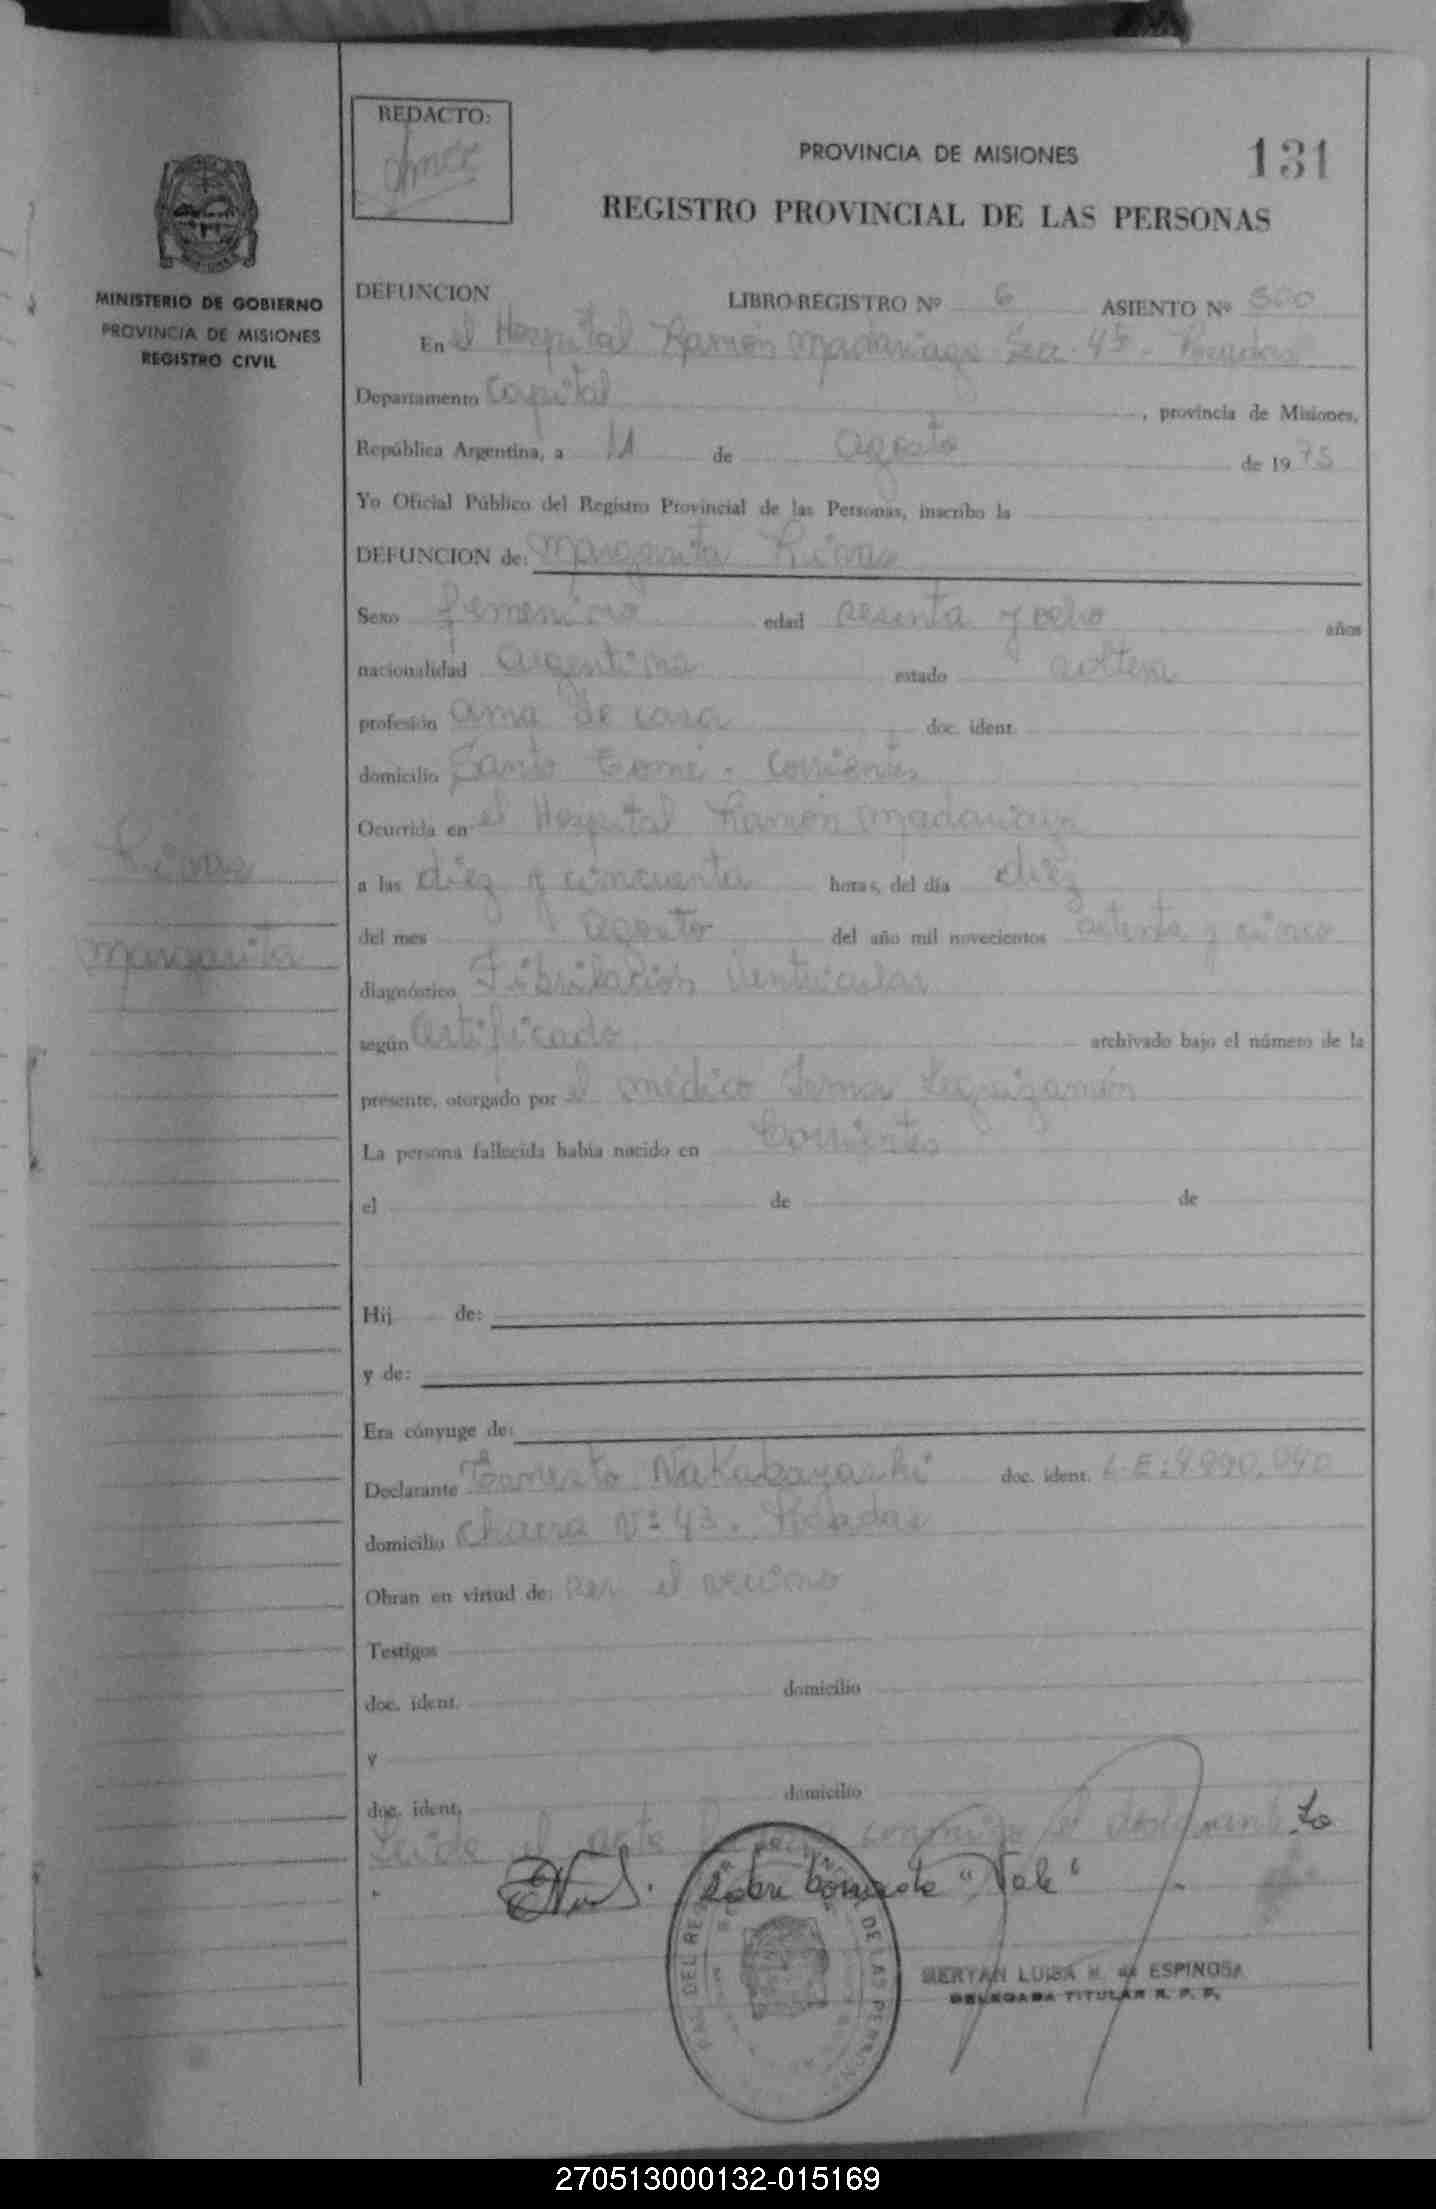 REDACTO:
PROVINCIA DE MISIONES
131
REGISTRO PROVINCIAL DE LAS PERSONAS
MINISTERIO DE GOBIERNO
PROVINCIA DE MISIONES
REGISTRO CIVIL
DEFUNCION LIBRO-REGISTRO Nº 6 ASIENTO Nº 500
En el Hospital Ramón Madariaga Sec. 4ª - Posadas
Departamento Capital, provincia de Misiones,
República Argentina, a 11 de agosto de 1975
Yo Oficial Público del Registro Provincial de las Personas, inscribo la
DEFUNCION de: Margarita Rivas
Sexo femenino edad sesenta y ocho años
nacionalidad argentina estado soltera
profesión ama de casa doc. ident.
domicilio Santo Tomé - Corrientes
Ocurrida en el Hospital Ramón Madariaga
Rivas
a las diez y cincuenta horas, del día diez
del mes agosto del año mil novecientos setenta y cinco
Margarita
diagnóstico Fibrilación Ventricular
según certificado archivado bajo el número de la
presente, otorgado por el médico Leguizamón
La persona fallecida había nacido en Corrientes
el de de
Hij de:
y de:
Era cónyuge de:
Declarante Ernesto Nakabayashi doc. ident. L.E:
domicilio Chacra Nº 43. Posadas
Obran en virtud de: ser el vecino
Testigos
doc. ident. domicilio
y
doc. ident. domicilio
Leída el acta la conmigo el declarante.
Sobre borrado "Vale"
DEL REGISTRO PROVINCIAL DE LAS PERSONAS
MERYAN LUISA H. de ESPINOSA
DELEGADA TITULAR R. P. P.
270513000132-015169